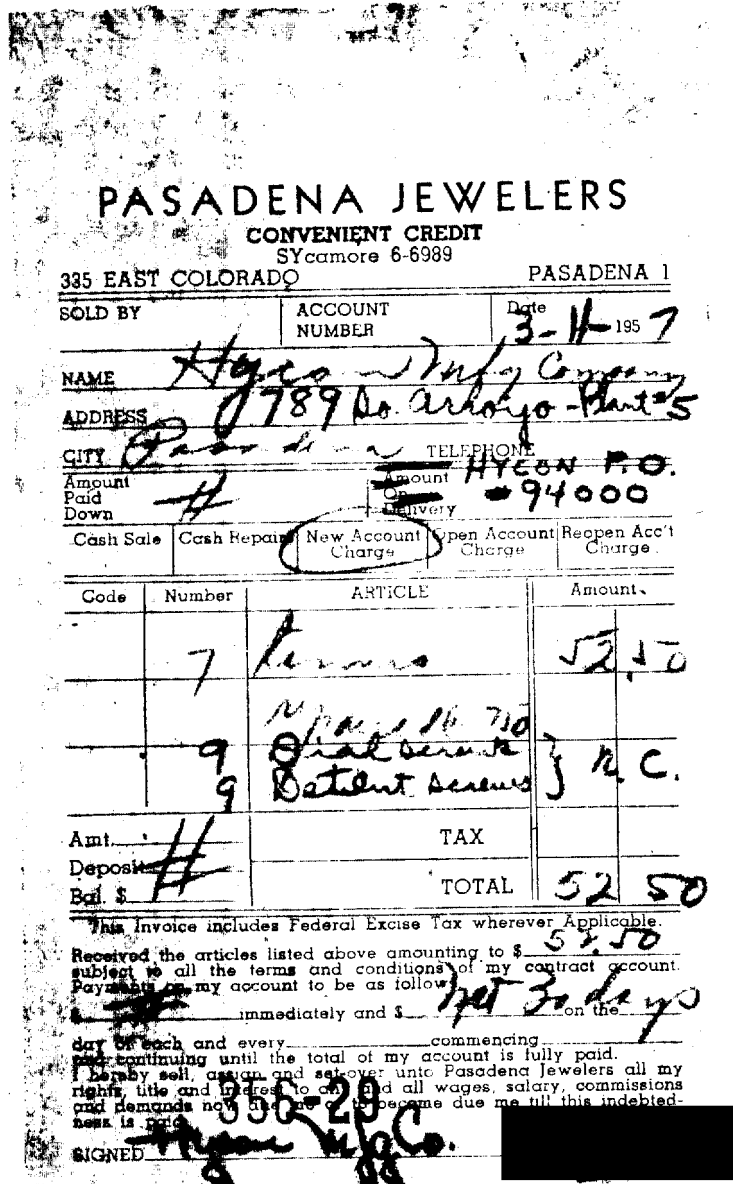 PASADENA JEWELERS
CONVENIENT CREDIT
SYcamore 6-6989
335 EAST COLORADO PASADENA 1
SOLD BY ACCOUNT NUMBER Date 3-11-1957
NAME Hycon Mfg Company
ADDRESS 789 So. Arroyo - Plant #5
CITY Pasadena TELEPHONE HYCON P.O.
Amount Paid Down Amount On Delivery 94000
Cash Sale Cash Repair New Account Charge Open Account Charge Reopen Acc't Charge
Code Number ARTICLE Amount
7 52.50
9 Dial screws
9 Detent screws } N.C.
Amt.
Deposit TAX
Bal. $ TOTAL 52 50
This Invoice includes Federal Excise Tax wherever Applicable.
Received the articles listed above amounting to $ 52.50
subject to all the terms and conditions of my contract account.
Payments on my account to be as follow
$ immediately and $ Net 30 days on the
day of each and every commencing
and continuing until the total of my account is fully paid.
I hereby sell, assign and set-over unto Pasadena Jewelers all my
rights, title and interest to any and all wages, salary, commissions
and demands now due me or to become due me till this indebted-
ness is paid
356-29
SIGNED Hycon Mfg Co.